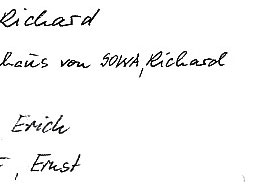 Richard
haus von SOWA, Richard
Erich
, Ernst